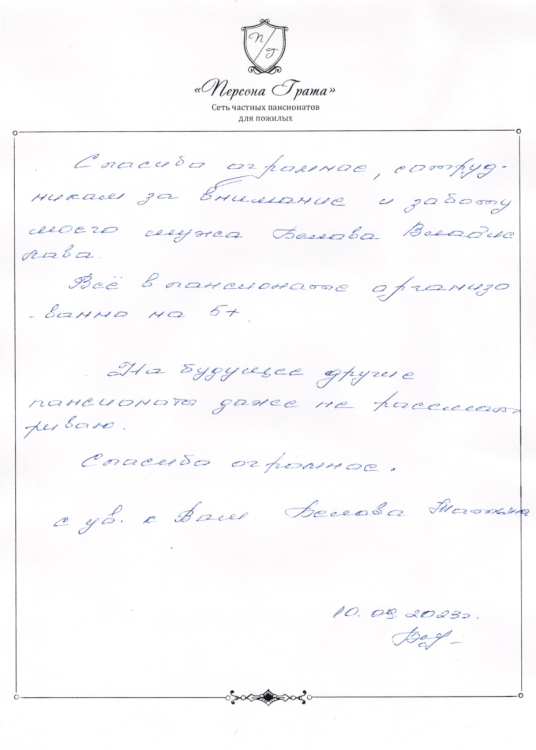 П Г
«Персона Грата»
Сеть частных пансионатов
для пожилых
Спасибо огромное, сотруд-
никам за внимание и заботу
моего мужа Белова Владис
лава.
Всё в пансионате организо
-ванно на 5+
На будущее другие
пансионаты даже не рассмат
риваю.
Спасибо огромное.
с ув. к Вам Белова Татьяна
10.09.2023г.